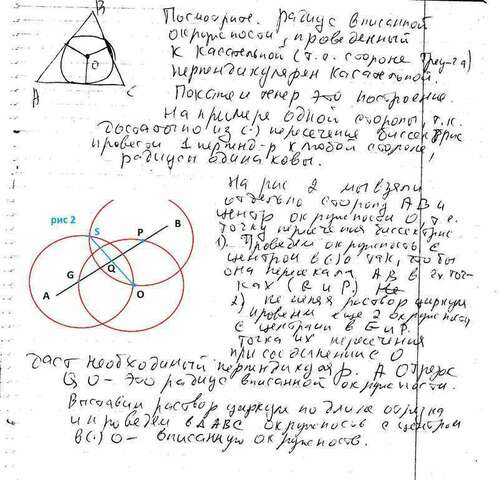 B
O
A
C
Посмотрите. Радиус вписанной
окружности, проведенный
к касательной (т.е. стороне треу-га)
перпендикулярен касательной.
Покажем теперь это построение.
На примере одной стороны, т.к.
достаточно из (·) пересечения биссектрис
провести 1 перпенд-р к любой стороне,
радиусы одинаковы.
рис 2
S
P
B
G
Q
A
O
На рис 2 мы взяли
отдельно сторону AB и
центр окружности O, т.е.
точку пересечения биссектрис
1). Проведем окружность с
центром в (·) O так, чтобы
она пересекала AB в 2х точ-
ках (G и P). Не
2) не меняя раствор циркуля
провели еще 2 окружности
с центрами в G и P.
точка их пересечения
при соединении с O
даст необходимый перпендикуляр. А Отрезок
QO - это радиус вписанной окружности.
Выставим раствор циркуля по длине отрезка
и проведем в ΔABC окружность с центром
в (·) O - вписанную окружность.